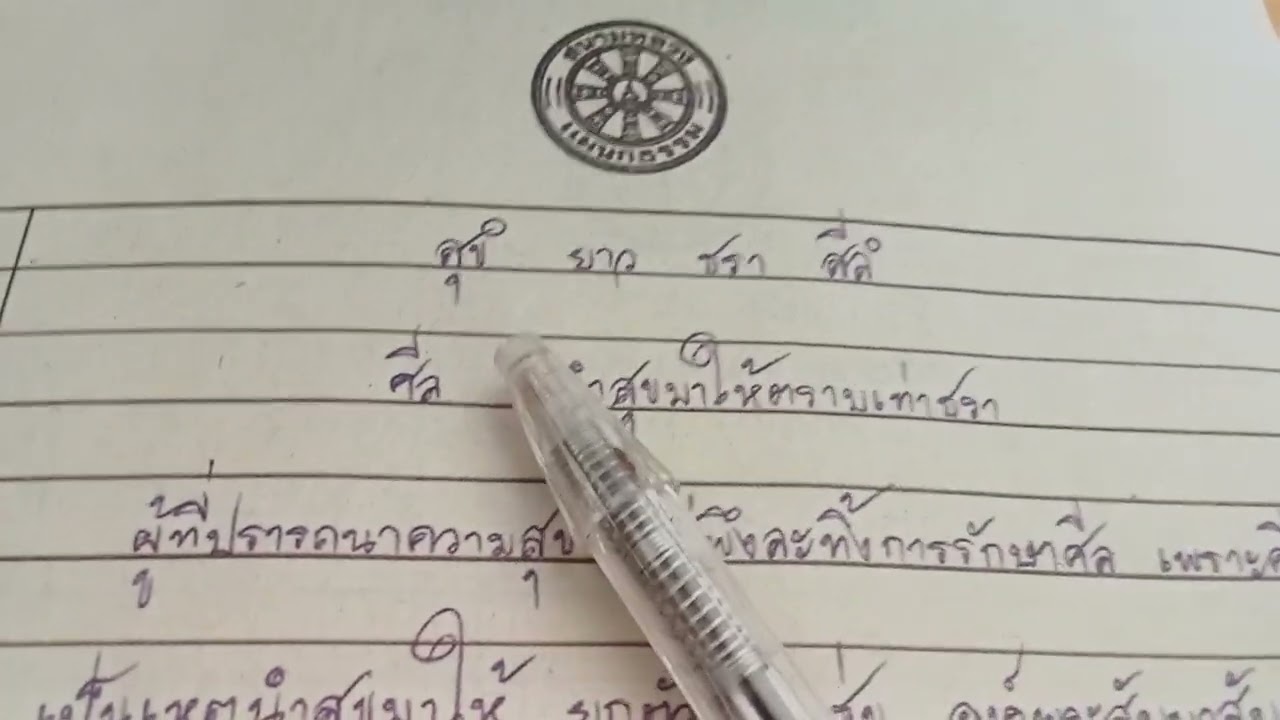 สนามหลวง
แผนกธรรม
สุขํ ยาว ชรา สีลํ
ศีล นำสุขมาให้ตราบเท่าชรา
ผู้ที่ปรารถนาความสุข พึงละทิ้งการรักษาศีล เพราะ
เป็นเหตุนำสุขมาให้